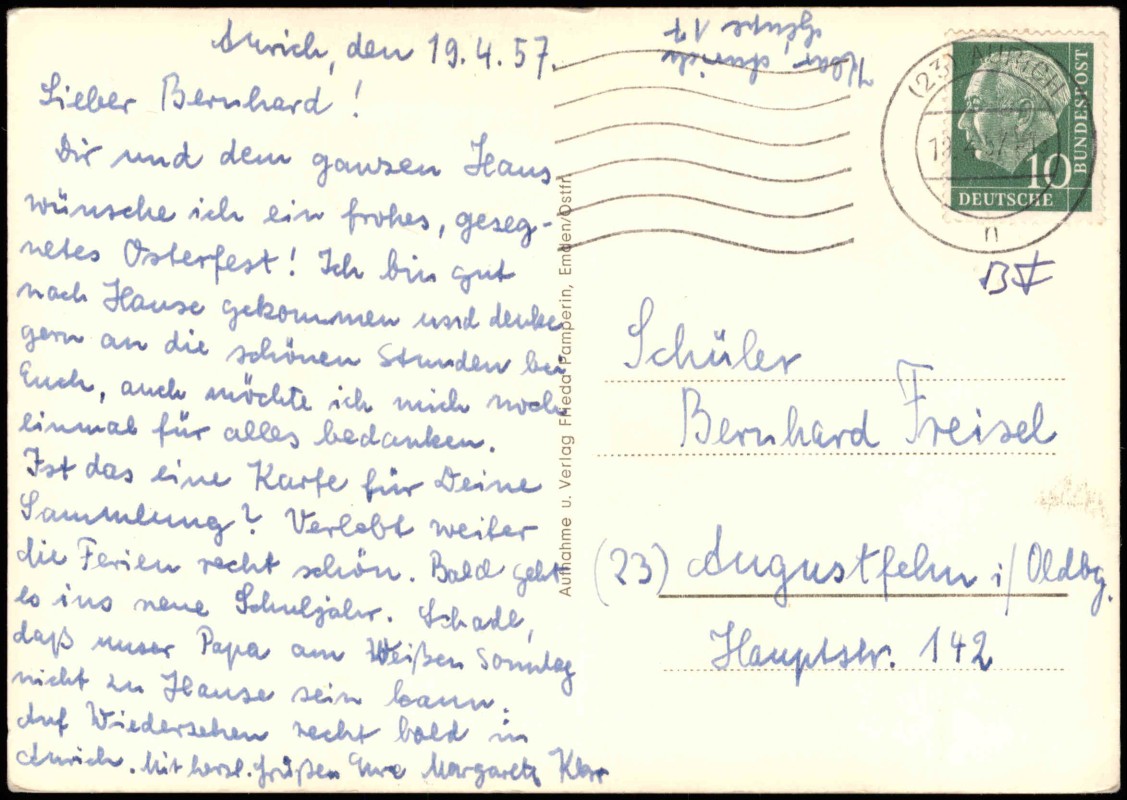 Aurich, den 19.4.57.
Lieber Bernhard!
Dir und dem ganzen Haus
wünsche ich ein frohes, geseg-
netes Osterfest! Ich bin gut
nach Hause gekommen und denke
gern an die schönen Stunden bei
Euch, auch möchte ich mich noch
einmal für alles bedanken.
Ist das eine Karte für Deine
Sammlung? Verlebt weiter
die Ferien recht schön. Bald geht
es ins neue Schuljahr. Schade,
daß unser Papa am Weißen Sonntag
nicht zu Hause sein kann.
Auf Wiedersehen recht bald in
Aurich. Mit herzl. Grüßen Eure Margareta Klar
Aufnahme u. Verlag Frieda Pamperin, Emden/Ostfr.
Klar Aurich
(23) AURICH
n
DEUTSCHE
BUNDESPOST
10
Schüler
Bernhard Freisel
(23) Augustfehn i/Oldbg.
Hauptstr. 142